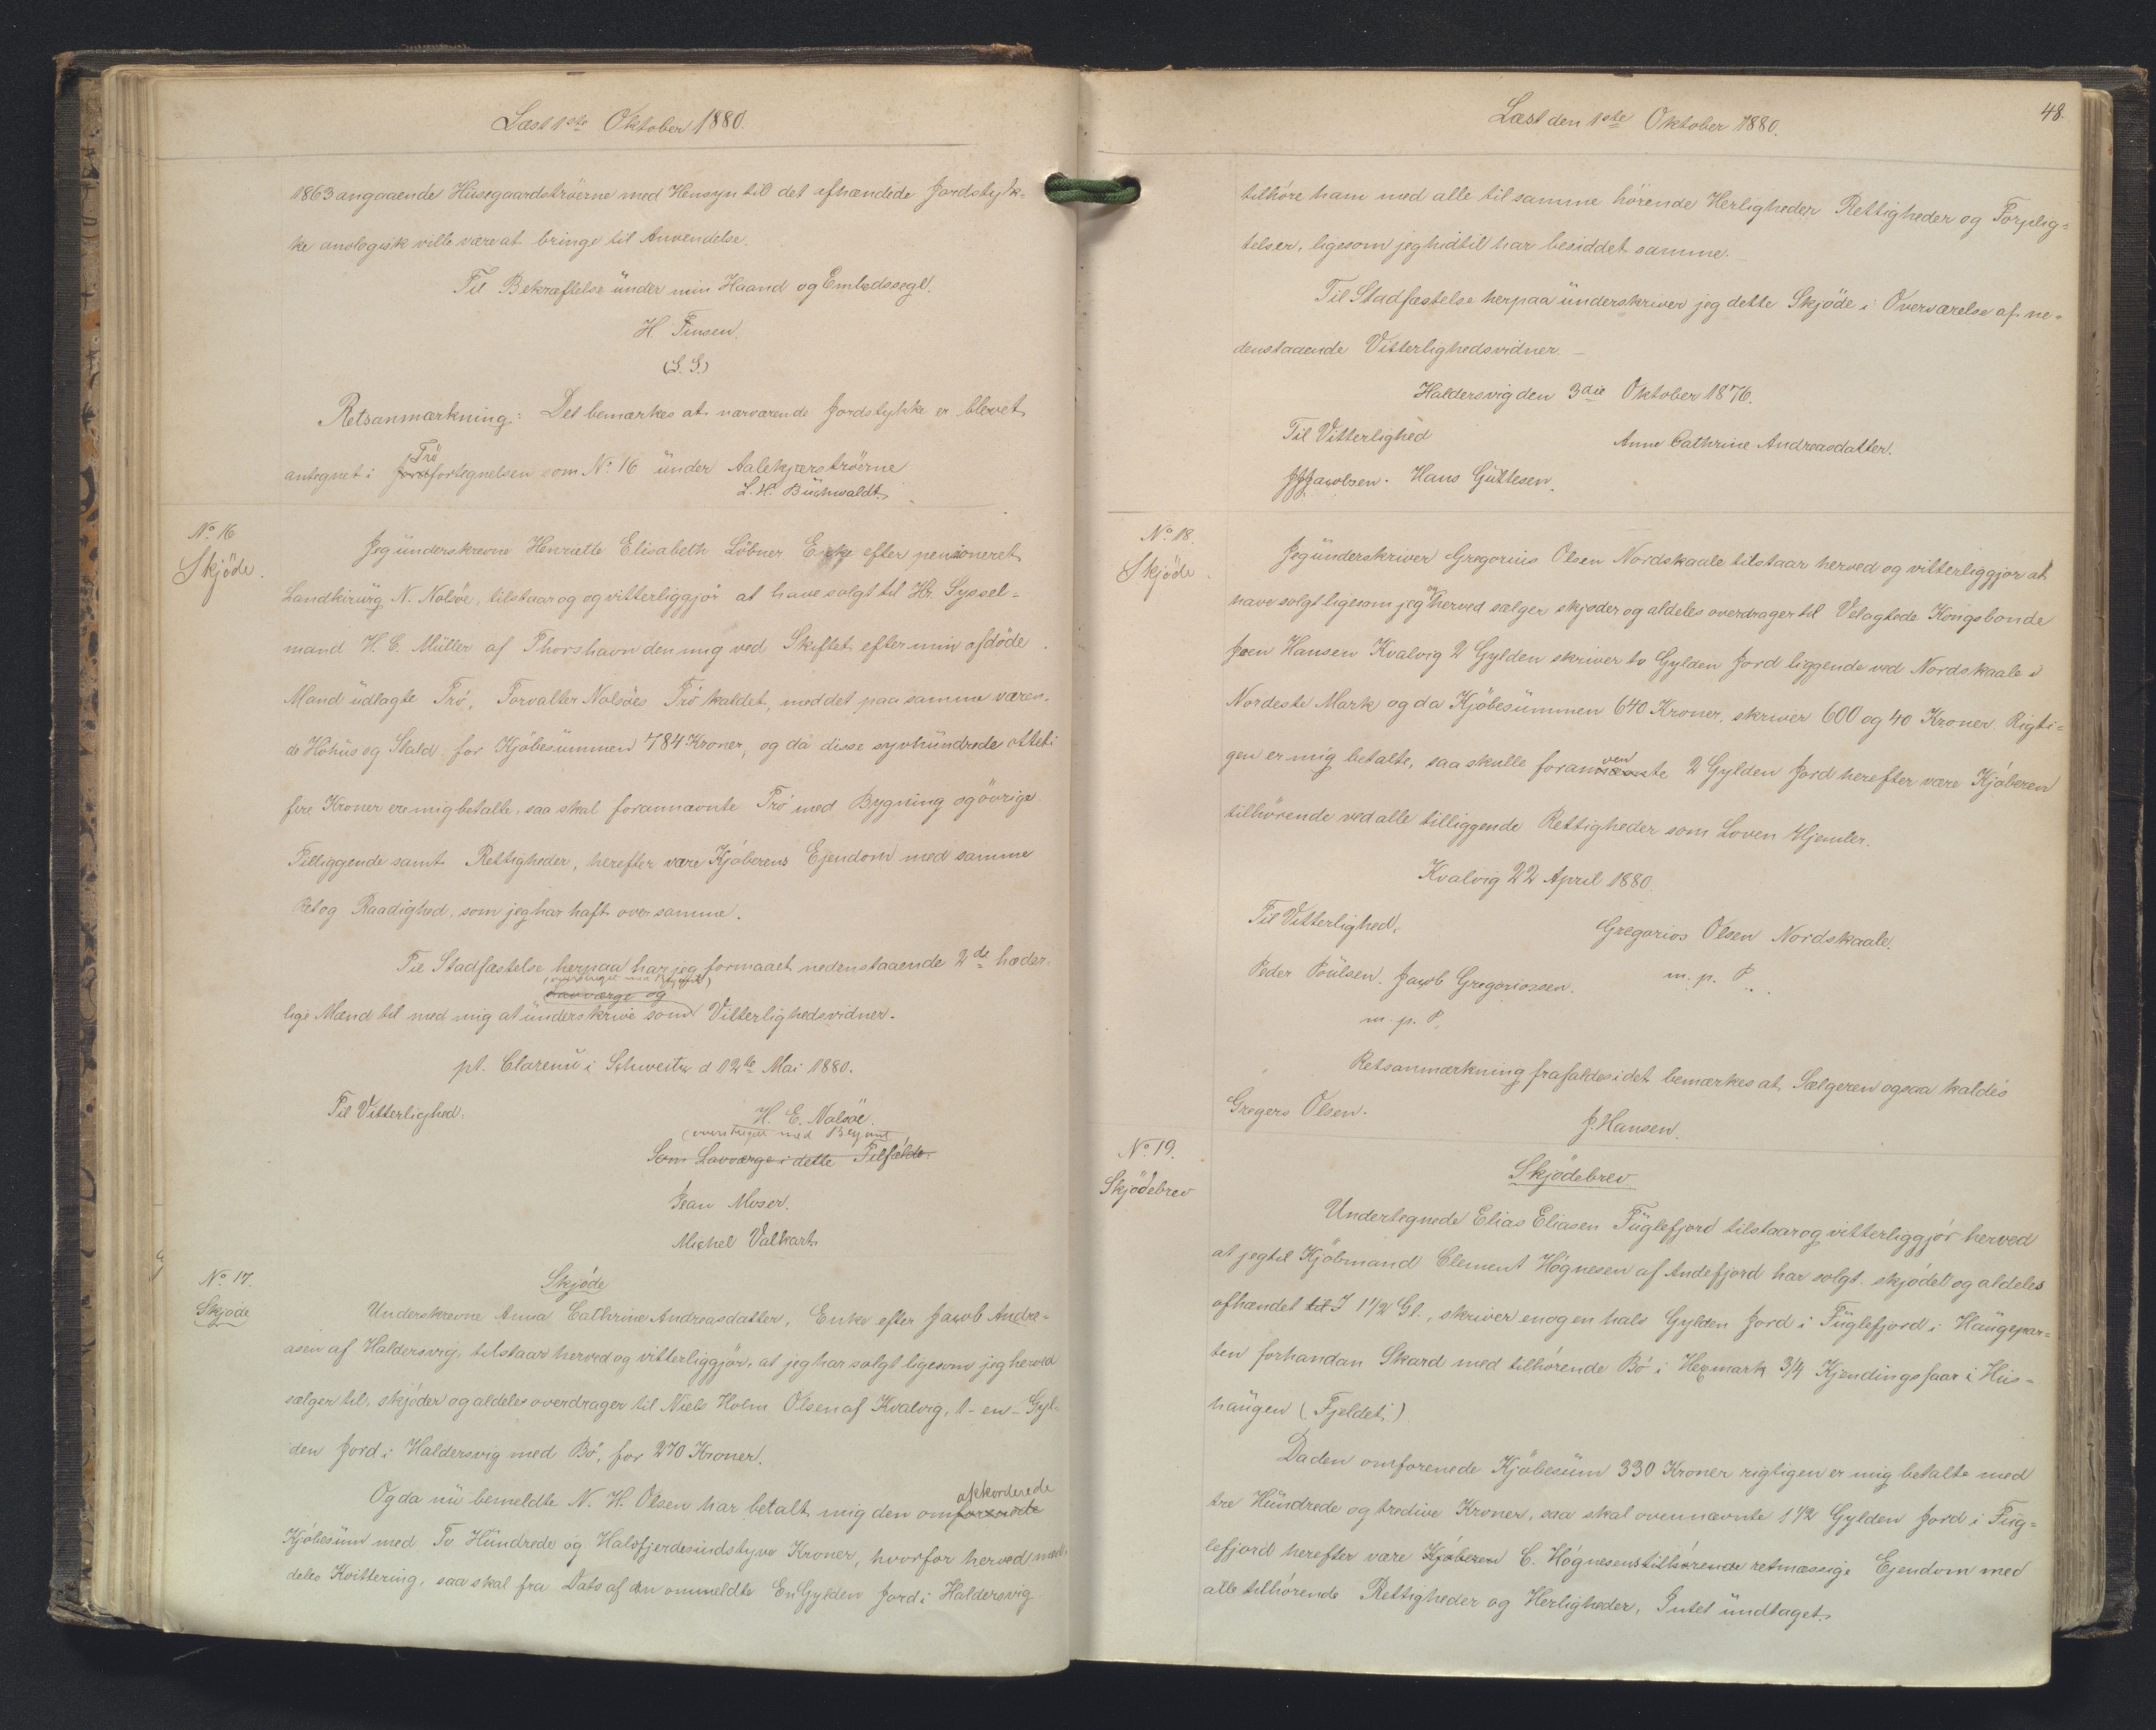 Læst 1ste Oktober 1880.
1863 angaaende Husegaardströerne med Hensyn til det afhændede Jordstyk-
ke anologisk ville være at bringe til Anvendelse.
Til Bekræftelse ünder min Haand og Embedssegl.
H. Finsen.
(L. S.)
Retsanmærkning: Det bemærkes at nærværende Jordstykke er blevet
Trö
antegnet i Jordfortegnelsen som No. 16 ünder Aalekjærströerne
L. H. Büchwaldt.
No. 16
Skjöde.
Jeg ünderskrevne Henriette Elisabeth Löbner Enke efter pensioneret
Landkirürg N. Nolsöe, tilstaar og og vitterliggjör at have solgt til Hr. Syssel-
mand H. C. Müller af Thorshavn den mig ved Skiftet efter min afdöde
Mand üdlagte Trö, Forvalter Nolsöes Trö kaldet, med det paa samme væren-
de Höhüs og Stald for Kjöbesümmen 784 Kroner, og da disse syvhündrede otteti
fire Kroner ere mig betalte, saa skal forannævnte Trö med Bygning og övrige
Tilliggende samt Rettigheder, herefter være Kjöberens Ejendom med samme
Ret og Raadighed, som jeg har haft over samme.
Til Stadfæstelse herpaa har jeg formaaet nedenstaaende 2de hæder-
Lavværge og
lige Mænd til med mig at ünderskrive som Vitterlighedsvidner.
pt. Clarenü i Schweitz d 12te Mai 1880.
Til Vitterlighed.
H. E. Nolsöe.
(overstreget med Blyant
Som Lavværge i dette Tilfælde.
Jean Moser.
Michel Valkart.
No. 17.
Skjöde
Skjöde
Underskrevne Anna Cathrine Andreasdatter, Enke efter Jacob Andre-
asen af Haldersvig, tilstaar herved og vitterliggjör, at jeg har solgt ligesom jeg herved
sælger til, skjöder og aldeles overdrager til Niels Holm Olsen af Kvalvig, 1 - en - Gyl-
den Jord i Haldersvig med Bö, for 270 Kroner.
Og da nü bemeldte N. H. Olsen har betalt mig den omforenede
akkorderede
Kjöbesüm med To Hündrede og Halvfjerdesindstyve Kroner, hvorfor herved med-
deles Kvittering, saa skal fra Dato af den ommeldte En Gylden Jord i Haldersvig
Læst den 1ste Oktober 1880.
48.
tilhöre ham med alle til samme hörende Herligheder Rettigheder og Forplig-
telser, ligesom jeg hidtil har besiddet samme.
Til Stadfæstelse herpaa ünderskriver jeg dette Skjöde i Overværelse af ne-
denstaaende Vitterlighedsvidner.
Haldersvig den 3die Oktober 1876.
Til Vitterlighed
Anne Cathrine Andreasdatter.
JJJacobsen. Hans Güttesen.
No. 18.
Skjöde.
Jeg ünderskriver Gregorius Olsen Nordskaale tilstaar herved og vitterliggjor at
og
have solgt ligesom jeg herved sælger skjoder og aldeles overdrager til Velagtede Kongsbonde
Joen Hansen Kvalvig 2 Gylden skriver to Gylden Jord liggende ved Nordskaale i
Nordeste Mark og da Kjöbesümmen 640 Kroner, skriver 600 og 40 Kroner. Rigti-
gen er mig betalte, saa skulle forannævnte 2 Gylden Jord herefter være Kjöberen
tilhörende ved alle tilliggende Rettigheder som Loven Hjemler.
Kvalvig 22 April 1880.
Til Vitterlighed,
Gregorios Olsen Nordskaale.
m. p. P.
Peder Poülsen. Jacob Gregoriossen.
m. p. P.
Retsanmærkning frafaldes idet bemærkes at Sælgeren ogsaa kaldes
Gregers Olsen.
J. Hansen.
No. 19.
Skjödebrev
Skjödebrev
Undertegnede Elias Eliasen Füglefjord tilstaar og vitterliggjör herved
at jeg til Kjöbmand Clement Högnesen af Andefjord har solgt skjödet og aldeles
afhændet til I 1 1/2 Gl., skriver en og en halv Gylden Jord i Füglefjord i Haügepar-
ten forhandan Skard med tilhörende Bö i Hexmark 3/4 Kjendingsfaar i Hüs-
haügen (Fjeldet)
Da den omforenede Kjöbesüm 330 Kroner rigtigen er mig betalte med
tre Hündrede og tredive Kroner, saa skal ovennævnte 1 1/2 Gylden Jord i Füg-
lefjord herefter være Kjöberen C. Högnesens tilhörende retmæssige Ejendom med
alle tilhörende Rettigheder og Herligheder, Intet ündtaget.